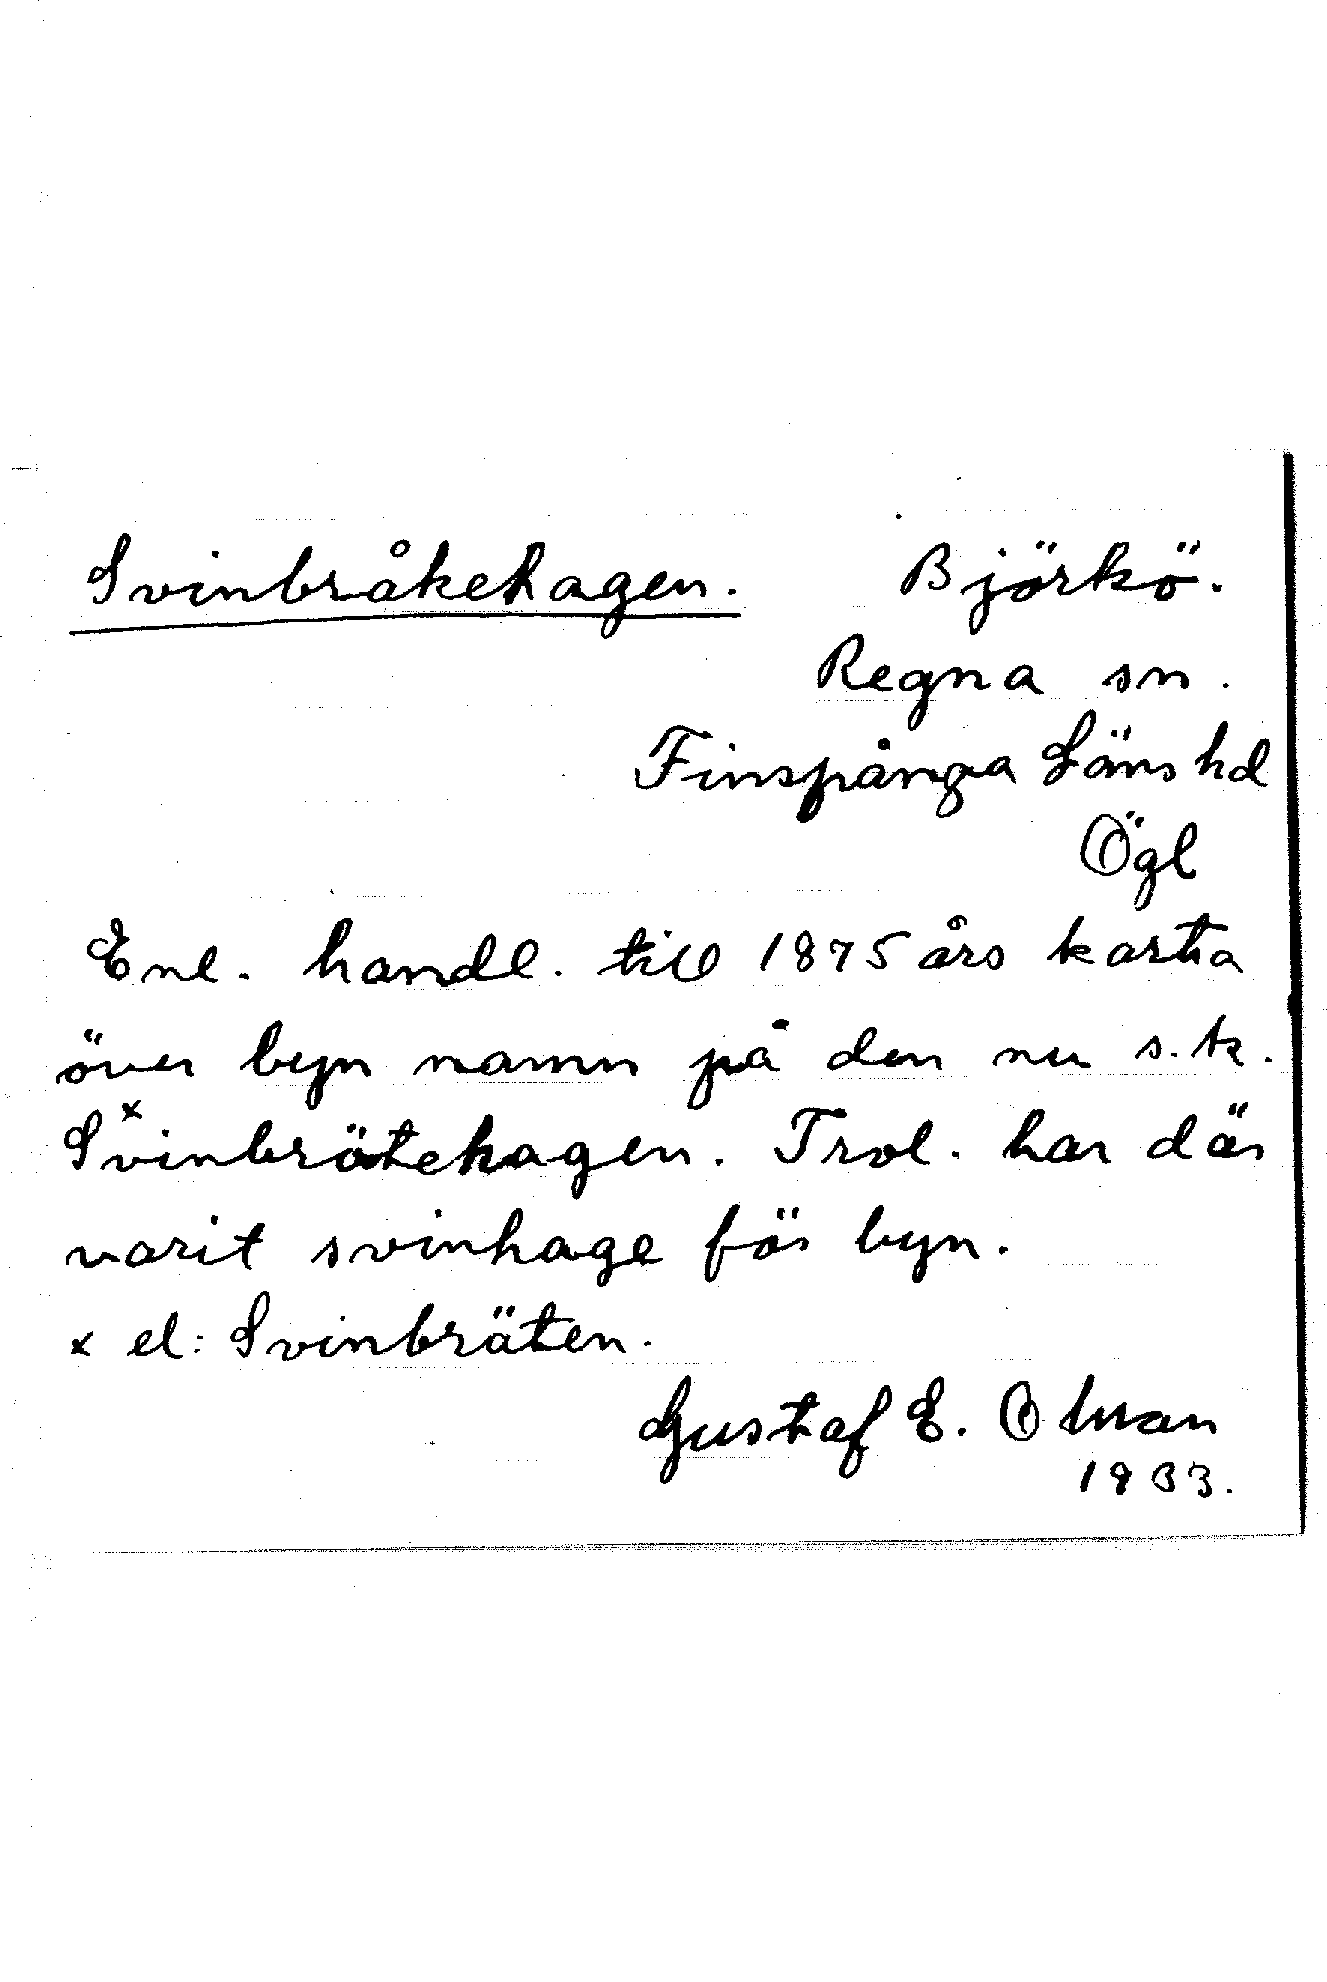 Svinbråkehagen. Björkö.
Regna sn.
Finspånga Läns hd
Ögl
Enl. handl. till 1875 års karta
över byn namn på den nu s.k.
Svinbrätehagen.ˣ Trol. har där
varit svinhage för byn.
x el: Svinbräten.
Gustaf E.
1933.